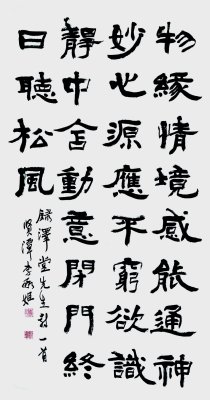 物緣情境感能通神
妙心源應不窮欲識
靜中含動意閉門終
日聽松風
錄澤堂先生詩一首
賢潭李